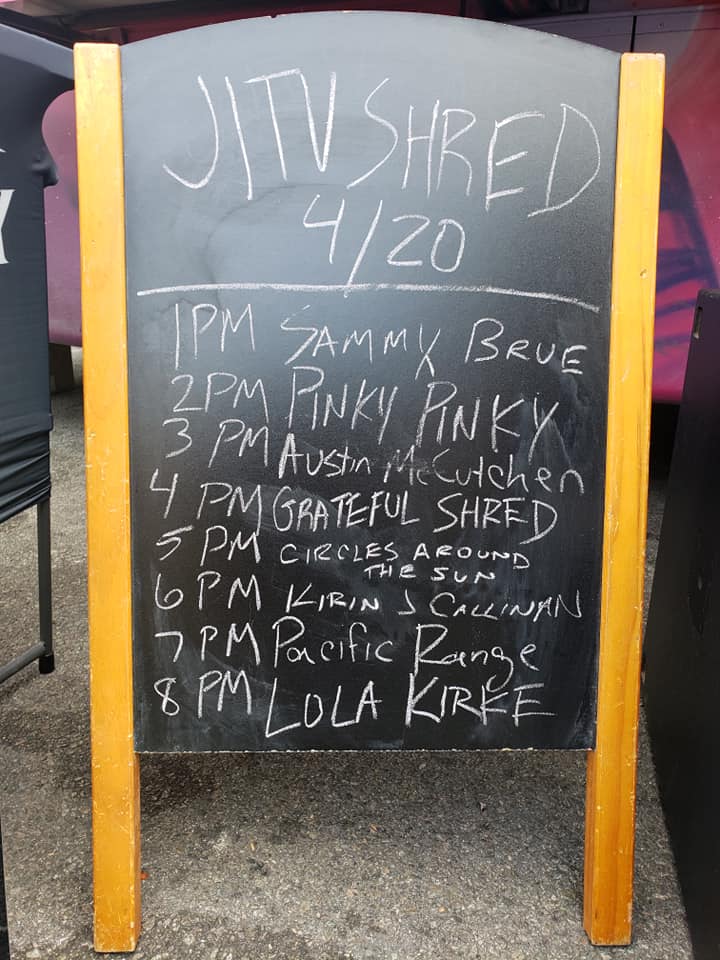 JITV SHRED
4/20
1PM SAMMY BRUE
2PM PINKY PINKY
3 PM Austin McCutchen
4 PM GRATEFUL SHRED
5 PM CIRCLES AROUND
THE SUN
6 PM KIRIN J CALLINAN
7 PM Pacific Range
8 PM LOLA KIRKE